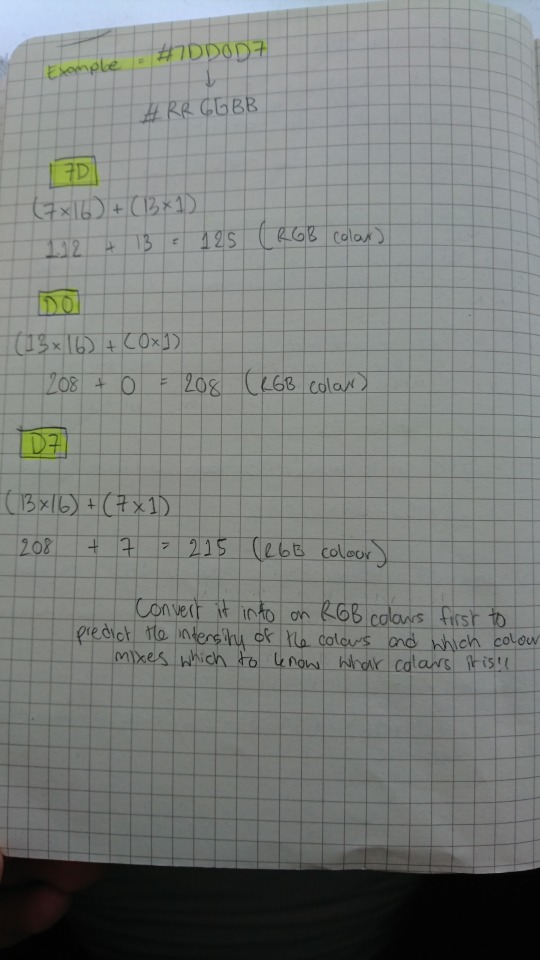 Example = #7DD0D7
↓
#RRGGBB
7D
(7×16) + (13×1)
112 + 13 = 125 (RGB colour)
D0
(13×16) + (0×1)
208 + 0 = 208 (RGB colour)
D7
(13×16) + (7×1)
208 + 7 = 215 (RGB colour)
Convert it into an RGB colours first to
predict the intensity of the colours and which colour
mixes which to know what colours it is!!